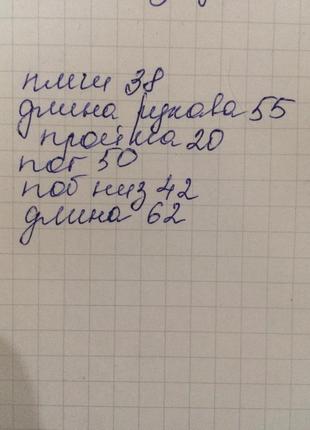 плечи 38
длина рукова 55
пройма 20
пог 50
поб низ 42
длина 62